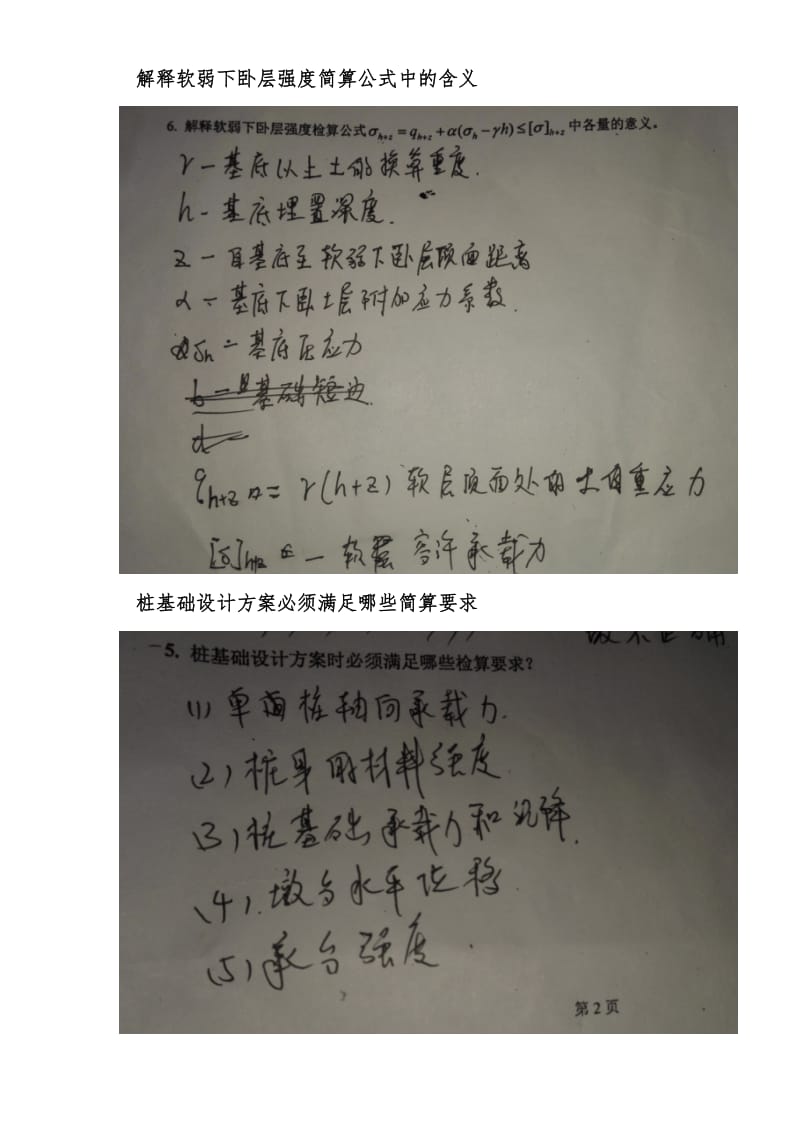 解释软弱下卧层强度简算公式中的含义
6. 解释软弱下卧层强度检算公式σh+z = qh+z + α(σh − γh) ≤ [σ]h+z 中各量的意义。
γ — 基底以上土的换算重度.
h - 基底埋置深度.
z — 自基底至软弱下卧层顶面距离
α — 基底下卧土层附加应力系数.
σh — 基底压应力
b — 基础短边.
qh+z = γ(h+z) 软层顶面处的土自重应力
[σ]h+z — 软层 容许承载力
桩基础设计方案必须满足哪些简算要求
5. 桩基础设计方案时必须满足哪些检算要求?
(1) 单桩轴向承载力.
(2) 桩身的材料强度
(3) 桩基础承载力和沉降.
(4). 墩台水平位移
(5) 承台强度.
第 2 页